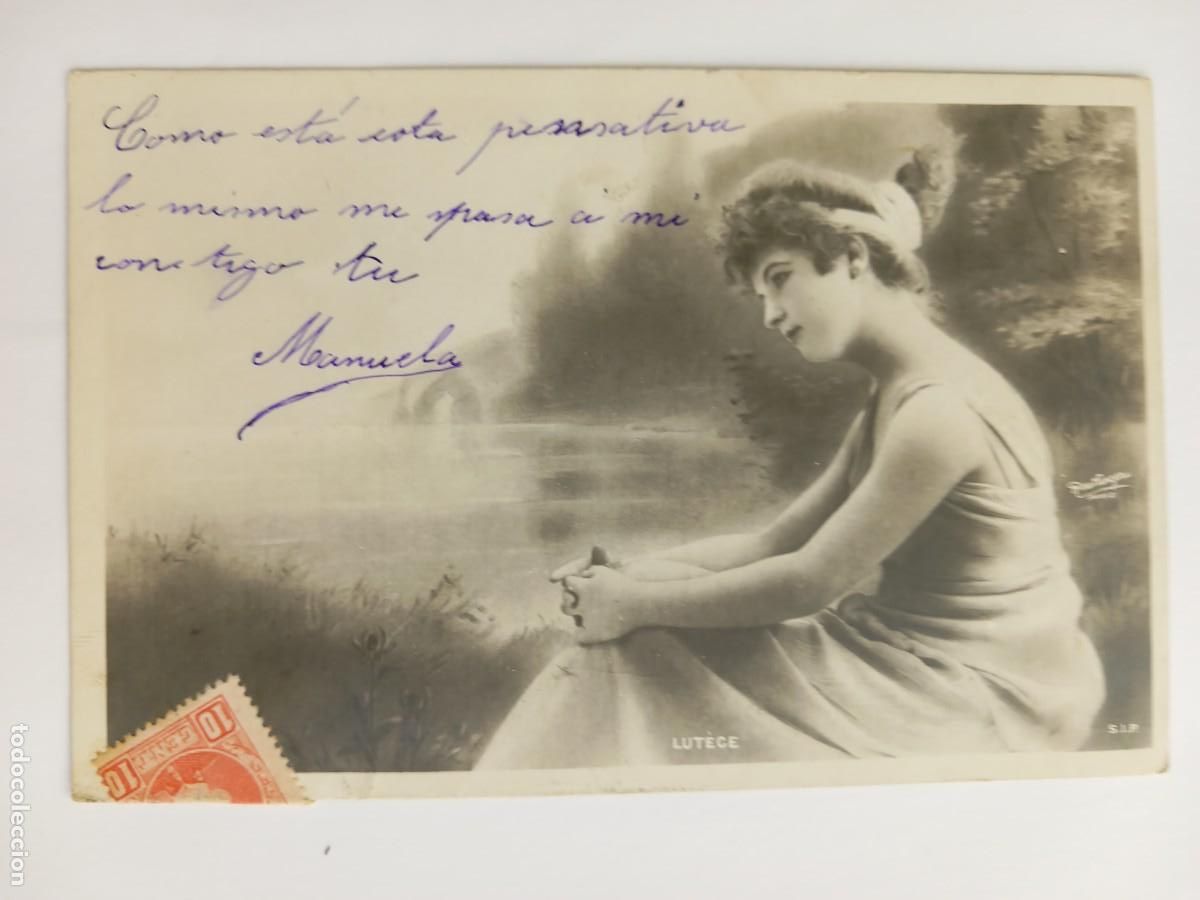 Como está esta pensativa
lo mismo me pasa a mi
contigo tu
Manuela
Reutlinger
PARIS
LUTÈCE
S.I.P.
10
CENTS
10
todocoleccion